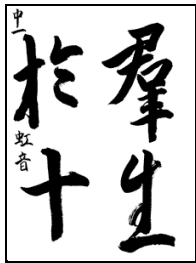 群生
於十
中一 虹音